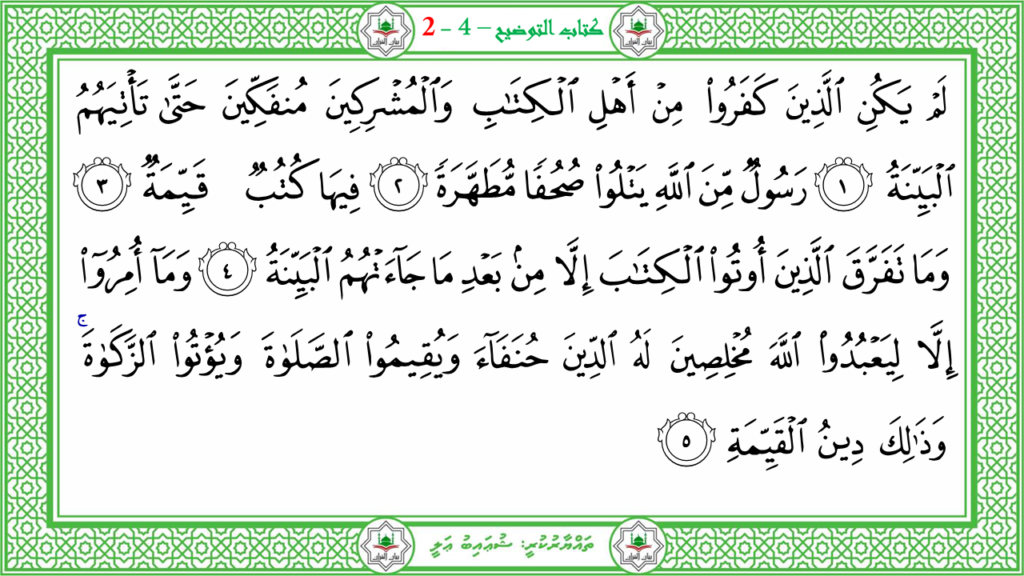 كتاب التوضيح – 4 - 2
لَمْ يَكُنِ ٱلَّذِينَ كَفَرُوا۟ مِنْ أَهْلِ ٱلْكِتَـٰبِ وَٱلْمُشْرِكِينَ مُنفَكِّينَ حَتَّىٰ تَأْتِيَهُمُ
ٱلْبَيِّنَةُ ١ رَسُولٌ مِّنَ ٱللَّهِ يَتْلُوا۟ صُحُفًا مُّطَهَّرَةً ٢ فِيهَا كُتُبٌ قَيِّمَةٌ ٣
وَمَا تَفَرَّقَ ٱلَّذِينَ أُوتُوا۟ ٱلْكِتَـٰبَ إِلَّا مِنۢ بَعْدِ مَا جَآءَتْهُمُ ٱلْبَيِّنَةُ ٤ وَمَآ أُمِرُوٓا۟
إِلَّا لِيَعْبُدُوا۟ ٱللَّهَ مُخْلِصِينَ لَهُ ٱلدِّينَ حُنَفَآءَ وَيُقِيمُوا۟ ٱلصَّلَوٰةَ وَيُؤْتُوا۟ ٱلزَّكَوٰةَ ۚ
وَذَٰلِكَ دِينُ ٱلْقَيِّمَةِ ٥
ތައްޔާރުކުރީ: ޝުޢައިބު ޢަލީ